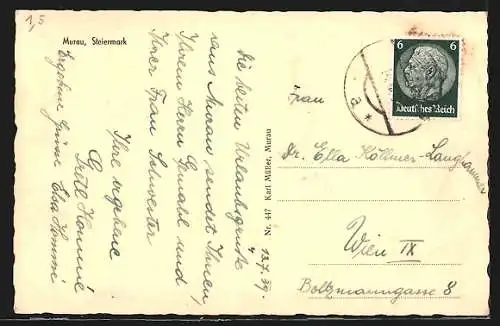 1,5
Murau, Steiermark
Die besten Urlaubsgrüsse
aus Murau sendet Ihnen,
Ihrem Herrn Gemahl und
Ihrer Frau Schwester
Ihre ergebene
Gretl
Ergebene Grüsse Elsa
13.7.39.
Nr. 447 Karl Müller, Murau
6 6
Deutsches Reich
a *
Frau
Dr. Ella Köllmer-Langhammer
Wien IX
Boltzmanngasse 8